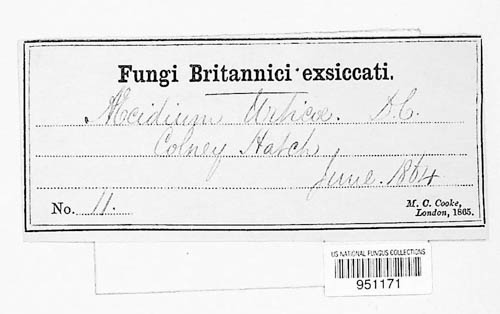 Fungi Britannici exsiccati.
Æcidium Urticæ. D.C.
Colney Hatch
June. 1864
No. 11.
M. C. Cooke,
London, 1865.
US NATIONAL FUNGUS COLLECTIONS
951171